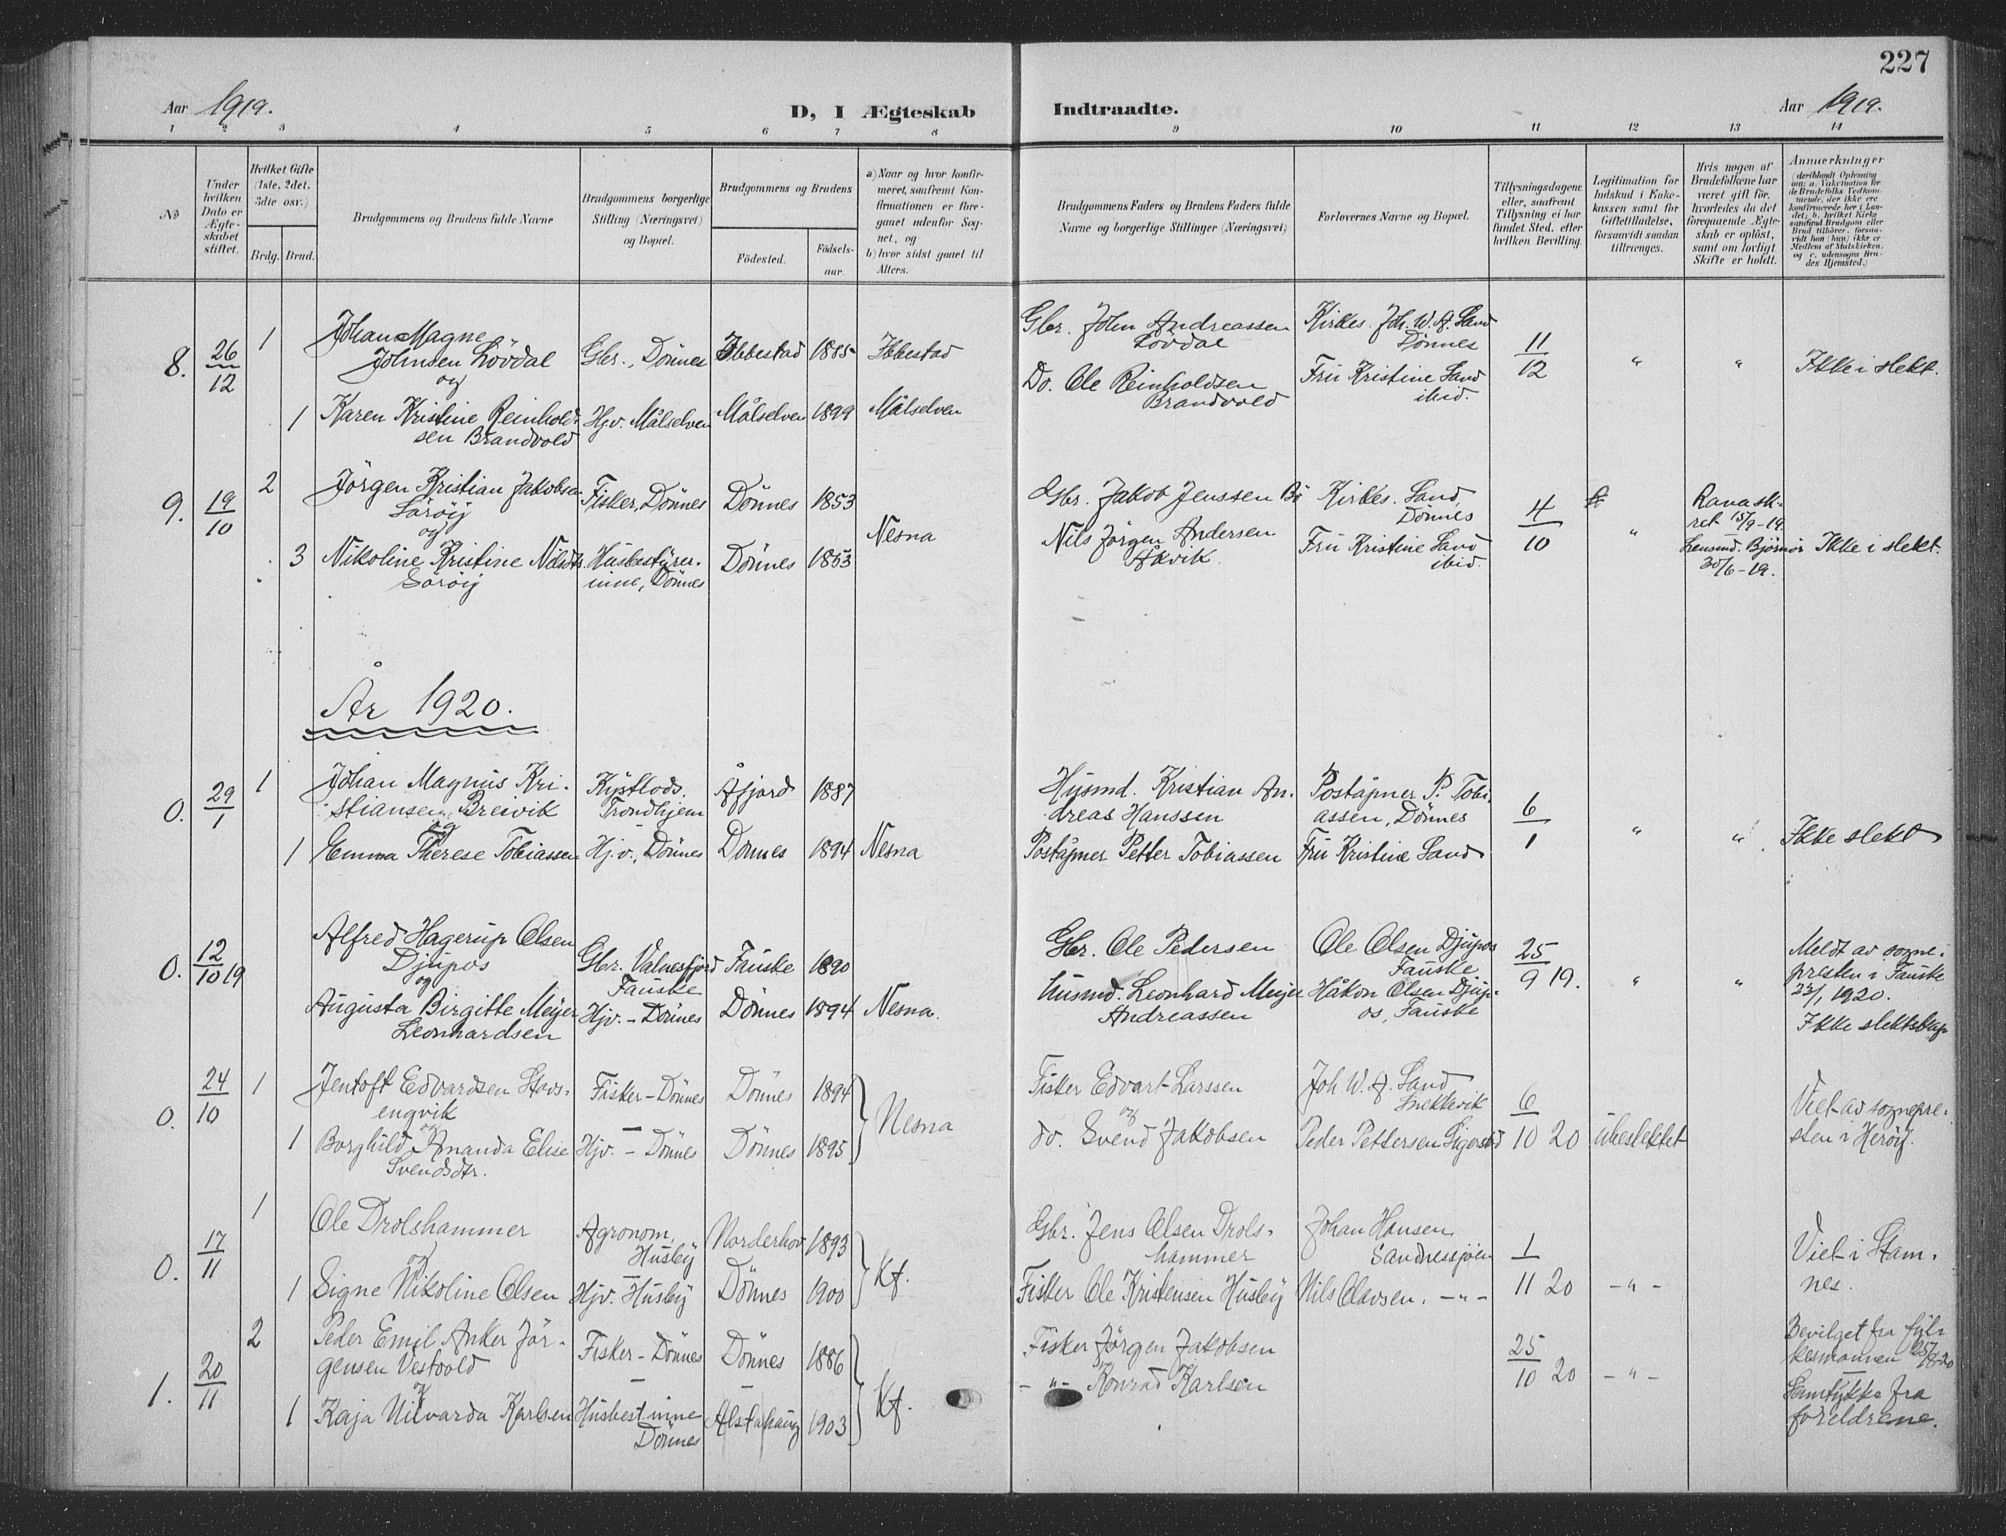 227
Aar 1919.
D, I Ægteskab
Indtraadte.
Aar 1919.
1 2 3 4 5 6 7 8 9 10 11 12 13 14
No
Under hvilken Dato er Ægteskabet stiftet.
Hvilket Gifte (1ste, 2det, 3die osv.)
Brdg. Brud.
Brudgommens og Brudens fulde Navne
Brudgommens borgerlige Stilling (Næringsvei) og Bopæl.
Brudgommens og Brudens
Fødested.
Fødselsaar.
a) Naar og hvor konfirmeret, saafremt Konfirmationen er foregaaet udenfor Sognet, og
b) hvor sidst gaaet til Alters.
Brudgommens Faders og Brudens Faders fulde Navne og borgerlige Stillinger (Næringsvei)
Forlovernes Navne og Bopæl.
Tillysningsdagene eller, saafremt Tillysning ei har fundet Sted, efter hvilken Bevilling.
Legitimation for Indskud i Enkekassen samt for Giftetilladelse, forsaavidt saadan tiltrænges.
Hvis nogen af Brudefolkene har været gift før, hvorledes da det foregaaende Ægteskab er opløst, samt om lovligt Skifte er holdt.
Anmærkninger
8. 26/12 1 Johan Magne Johnsen Lövdal Gbr., Dönnes Ibbestad 1885 Ibbestad Gbr. John Andreassen Lövdal Kirkes. Joh. W. A. Sand Dönnes 11/12 " " Ikke i slekt.
og
1 Karen Kristine Reinholdsen Brandvold Hjv. Målselven Målselven 1899 Målselven Do. Ole Reinholdsen Brandvold Fru Kristine Sand ibid.
9. 19/10 2 Jörgen Kristian Jakobsen Söröig Fisker, Dönnes Dönnes 1853 Nesna Gbr. Jakob Jenssen Bö Kirkes. Sand, Dönnes 4/10 " Rana skret 15/9-19. Lensmd. Björnör 30/6-19. Ikke i slekt.
og
3 Nikoline Kristine Nilsdtr. Söröig Husbestyrerinne, Dönnes Dönnes 1853 Nils Jörgen Andersen Åkvik. Fru Kristine Sand ibid.
År 1920.
0. 29/1 1 Johan Magnus Kristiansen Breivik Kystlods, Trondhjem Åfjord 1887 Husmd. Kristian Andreas Hanssen Poståpner P. Tobiassen, Dönnes 6/1 " " Ikke slekt
og
1 Emma Therese Tobiassen Hjv., Dönnes Dönnes 1894 Nesna Poståpner Petter Tobiassen Fru Kristine Sand
0. 12/10 19 Alfred Hagerup Olsen Djupos Gbr. Valnesfjord Fauske Fauske 1890 Gbr. Ole Pedersen Ole Olsen Djupos Fauske 25/9 19. " " Meldt av sognepresten i Fauske 23/1 1920. Ikke slektskap
og
Augusta Birgitte Meijer Leonhardsen Hjv. - Dönnes Dönnes 1894 Nesna. Husmd. Leonhard Meijer Andreassen Håkon Olsen Djupos, Fauske
0. 24/10 1 Jentoft Edvardsen Stavsengvik Fisker - Dönnes Dönnes 1894 Nesna Fisker Edvart Larssen Joh. W. A. Sand Snekkevik 6/10 20 Ubeslektet Viet av sognepresten i Heröy.
og
1 Borghild Amanda Elise Svendsdtr. Hjv. - Dönnes Dönnes 1895 do. Svend Jakobsen Peder Pettersen
0. 17/11 1 Ole Drolshammer Agronom, Husby Norderhov 1893 Kf. Gbr. Jens Olsen Drolshammer Johan Hansen Sandnessjöen 1/11 20 -"- Viet i Stamnes.
og
1 Signe Nikoline Olsen Hjv. Husby Dönnes 1900 Fisker Ole Kristensen Husby Nils Olavsen. -"-
1. 20/11 2 Peder Emil Anker Jörgensen Vestvold Fisker - Dönnes Dönnes 1886 Kf. Fisker Jörgen Jakobsen 25/10 20 -"- Bevilget fra fylkesmannen Samtykke fra foreldrene.
og
1 Kaja Nilvarda Karlsen Husbest.inne Dönnes Alstahaug 1903 -"- Konrad Karlsen